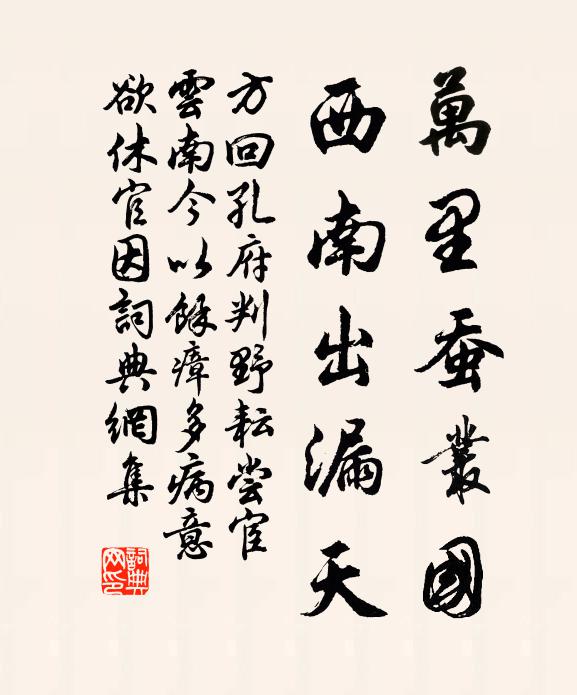 萬里蚕叢國
西南出漏天
方回孔府判野耘尝宦
雲南今以餘瘴多病意
欲休官因詞典網集
詞典网印